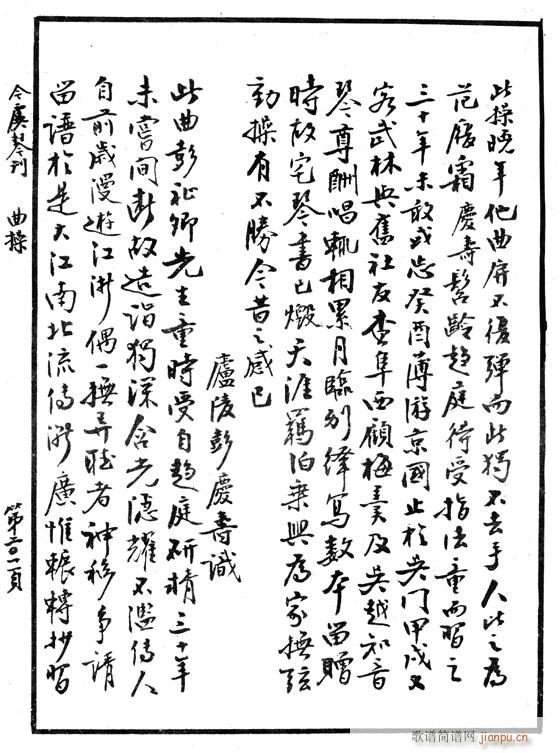 此操晚年他曲屏不復彈而此獨不去手人比之為
范履霜慶壽髫齡趨庭待受指法童而習之
三十年未敢或忘癸酉薄游京國止於吳門甲戌又
客武林與舊社友查阜西顧梅羹及吳越知音
琴尊酬唱輒相累月臨別繹寫數本留贈
時故宅琴書已燬天涯羈泊乘興為家撫弦
動操有不勝今昔之感已
廬陵彭慶壽識
此曲彭祉卿先生童時受自趨庭研精三十年
未嘗間斷故造詣獨深含光隱耀不濫傳人
自前歲漫遊江浙偶一撫弄聽者神移爭請
留譜於是大江南北流傳漸廣惟輾轉抄習
今虞琴刊 曲操
第二〇一頁
歌谱简谱网
jianpu.cn